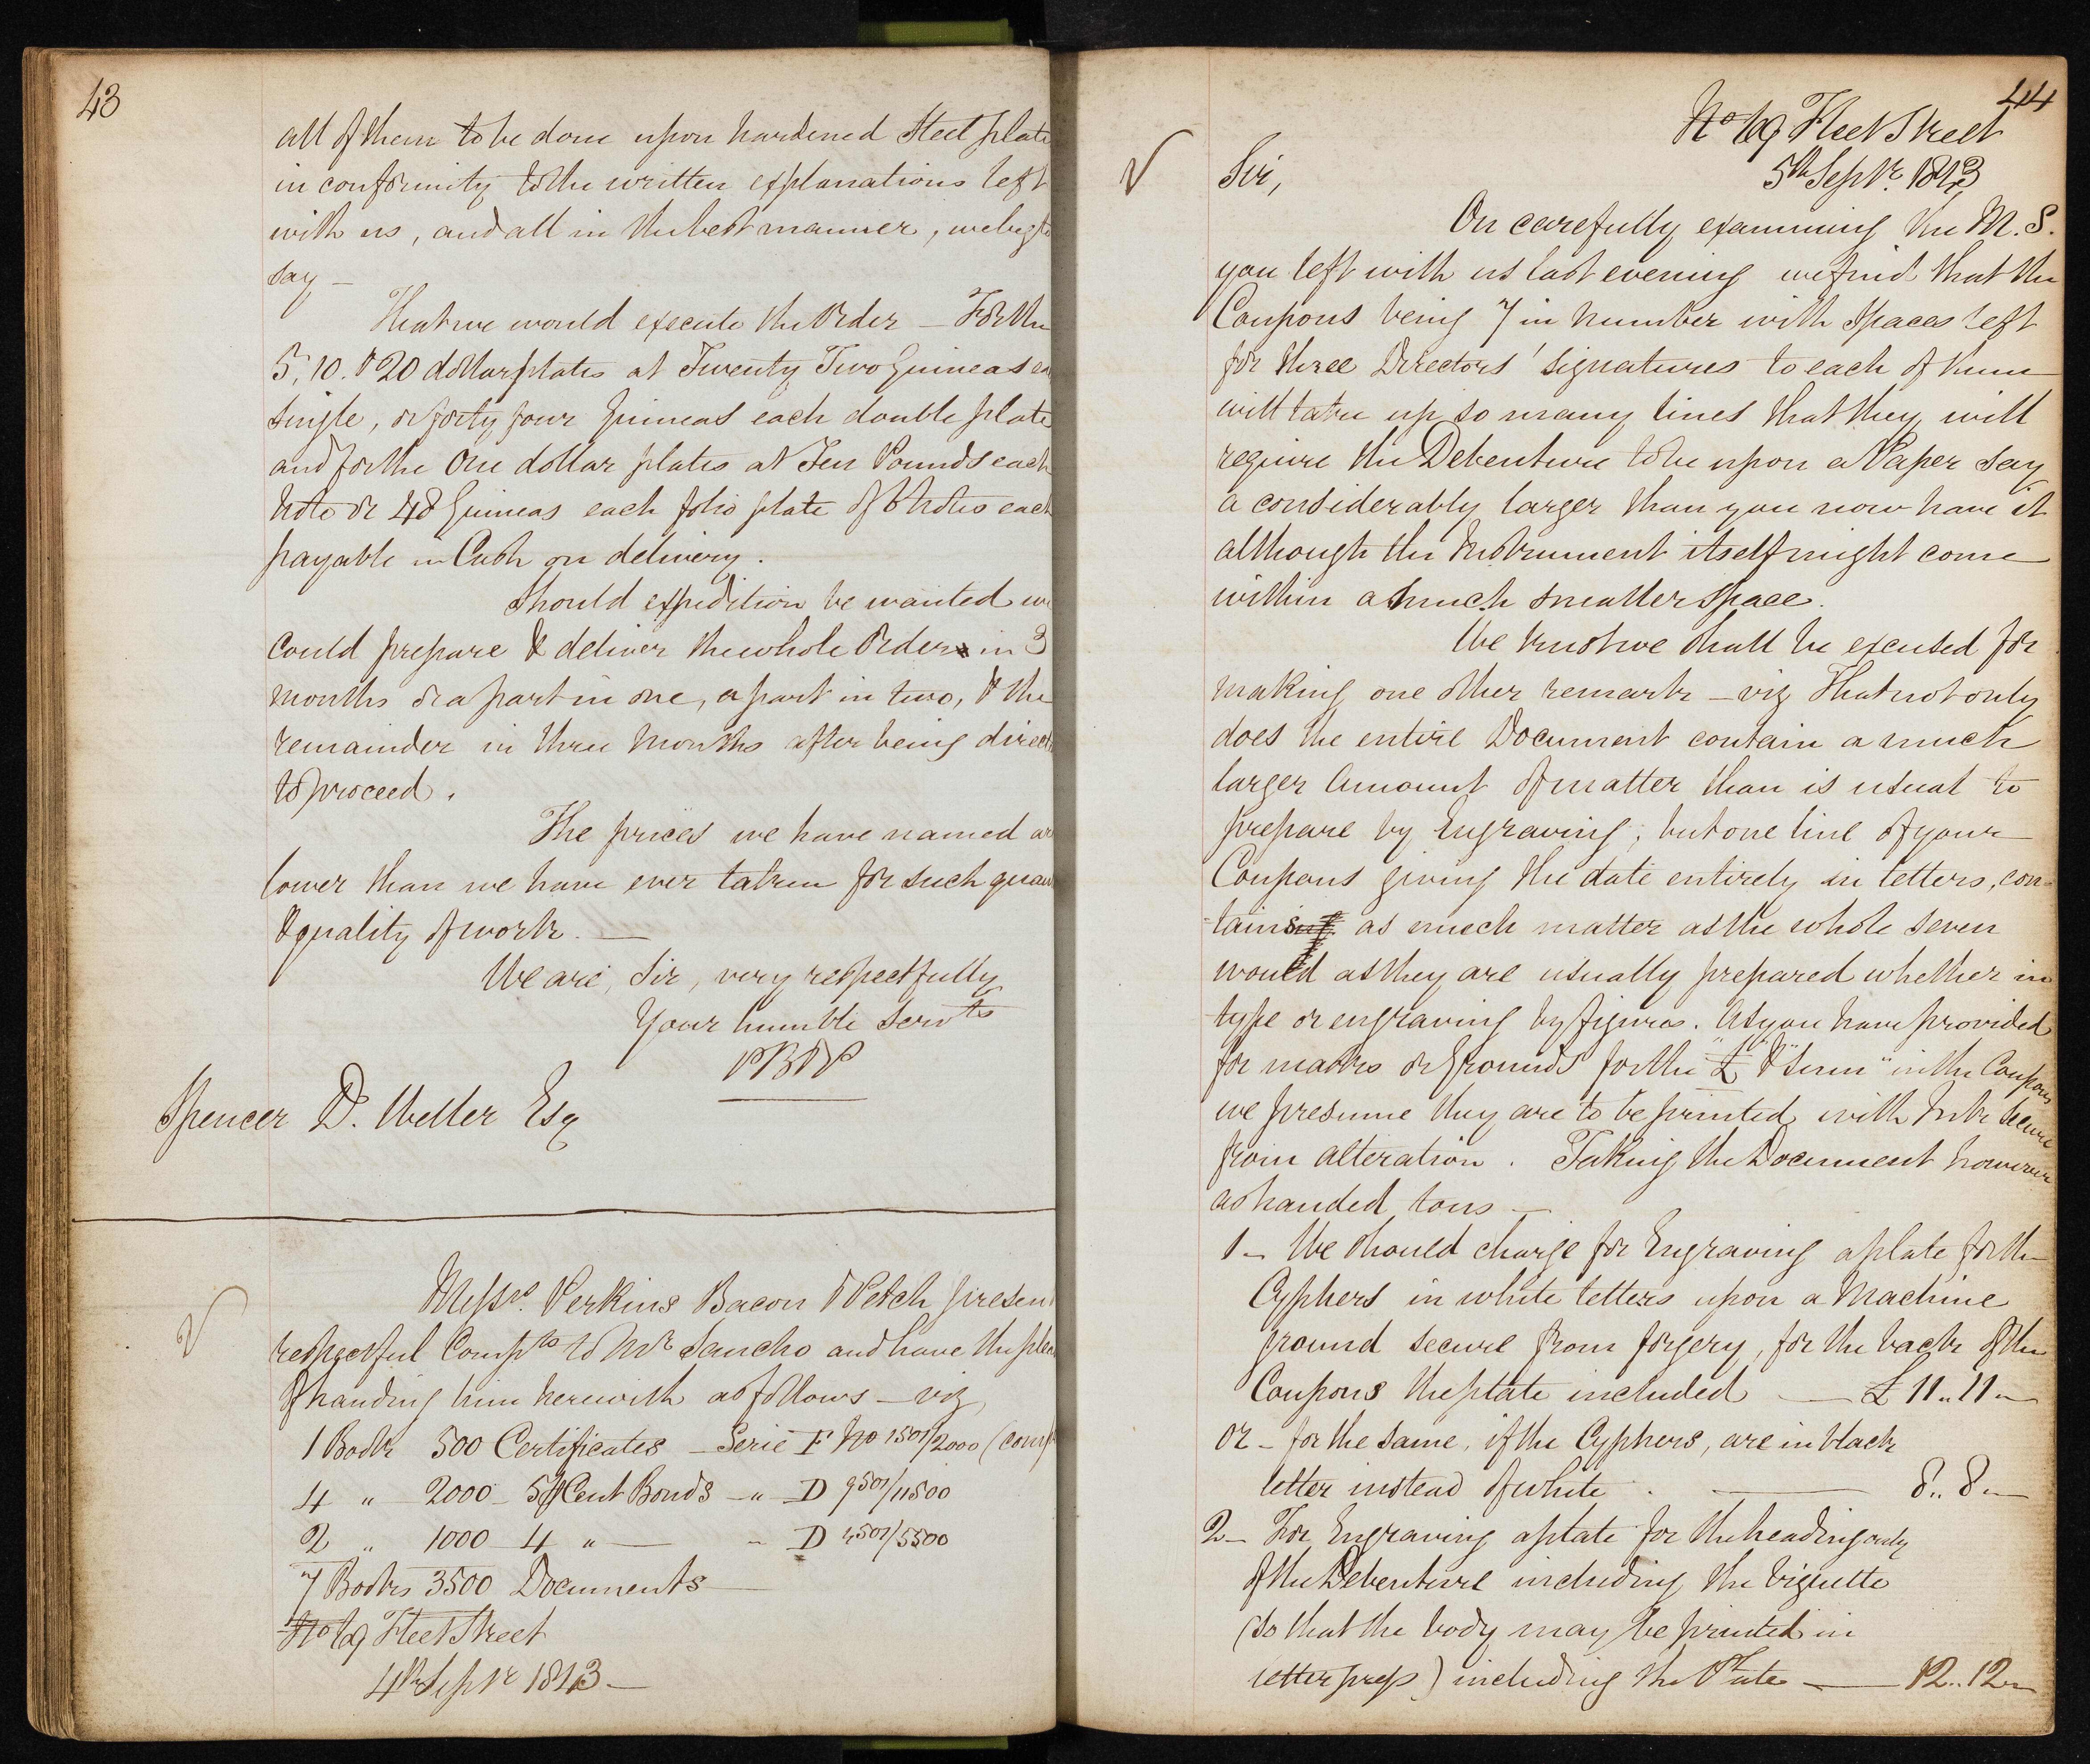 43
all of them to be done upon hardened Steel plate
in conformity to the written explanations left
with us, and all in the best manner, we beg to
say —
That we would execute the Order — For the
5, 10. & 20 dollar plates at Twenty Two Guineas ea
single, or forty four Guineas each double plate
and for the One dollar plates at Ten Pounds each
Note or 48 Guineas each folio plate of 6 Notes each
payable in Cash on delivery.
Should expedition be wanted we
could prepare & deliver the whole Order in 3
months or a part in one, a part in two, & the
remainder in three Months after being direct
to proceed.
The prices we have named are
lower than we have ever taken for such quan
& quality of work. —
We are, Sir, very respectfully
Your humble Servts
PB&P
Spencer D. Weller Esq
Messrs. Perkins Bacon & Petch presen
respectful Compts to Mr Sancho and have the plea
of handing him herewith as follows — viz
1 Book 500 Certificates — Serie F No 1501/2000 (comp
4 " — 2000 — 5 ⅌ Cent Bonds — " — D 9501/11500
2 " 1000 — 4 " — " — D 4501/5500
7 Books 3500 Documents —
No 69 Fleet Street
4th Septr 1843 —
44
No 69 Fleet Street
5th Septr. 1843
Sir,
On carefully examining the M.S.
you left with us last evening we find that the
Coupons being 7 in number with spaces left
for three Directors' signatures to each of them
will take up so many lines that they will
require the Debenture to be upon a Paper say
a considerably larger than you now have it
although the Instrument itself might come
within a much smaller space.
We trust we shall be excused for
making one other remark — viz That not only
does the entire Document contain a much
larger Amount of matter than is usual to
prepare by Engraving; but one line of your
Coupons giving the date entirely in letters, con-
-tains as much matter as the whole seven
would as they are usually prepared whether in
type or engraving by figures. As you have provided
for marks or grounds for the "£" & "Sum" in the Coupons
we presume they are to be printed with Ink secure
from alteration. Taking the Document however
as handed to us —
1 — We should charge for Engraving a plate for the
Cyphers in white letters upon a Machine
ground secure from forgery, for the back of the
Coupons the plate included — £ 11..11 —
or — for the same, if the Cyphers, are in black
letter instead of white . — 8..8 —
2 — For Engraving a plate for the heading only
of the Debenture including the Vignette
(so that the body may be printed in
letterpress) including the Plate — 12..12 —